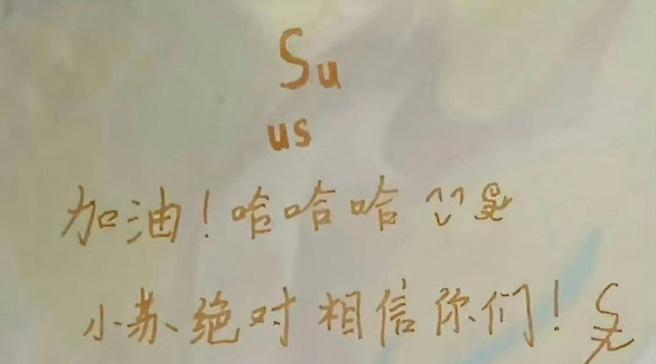 Su
us
加油！哈哈哈
小苏绝对相信你们！